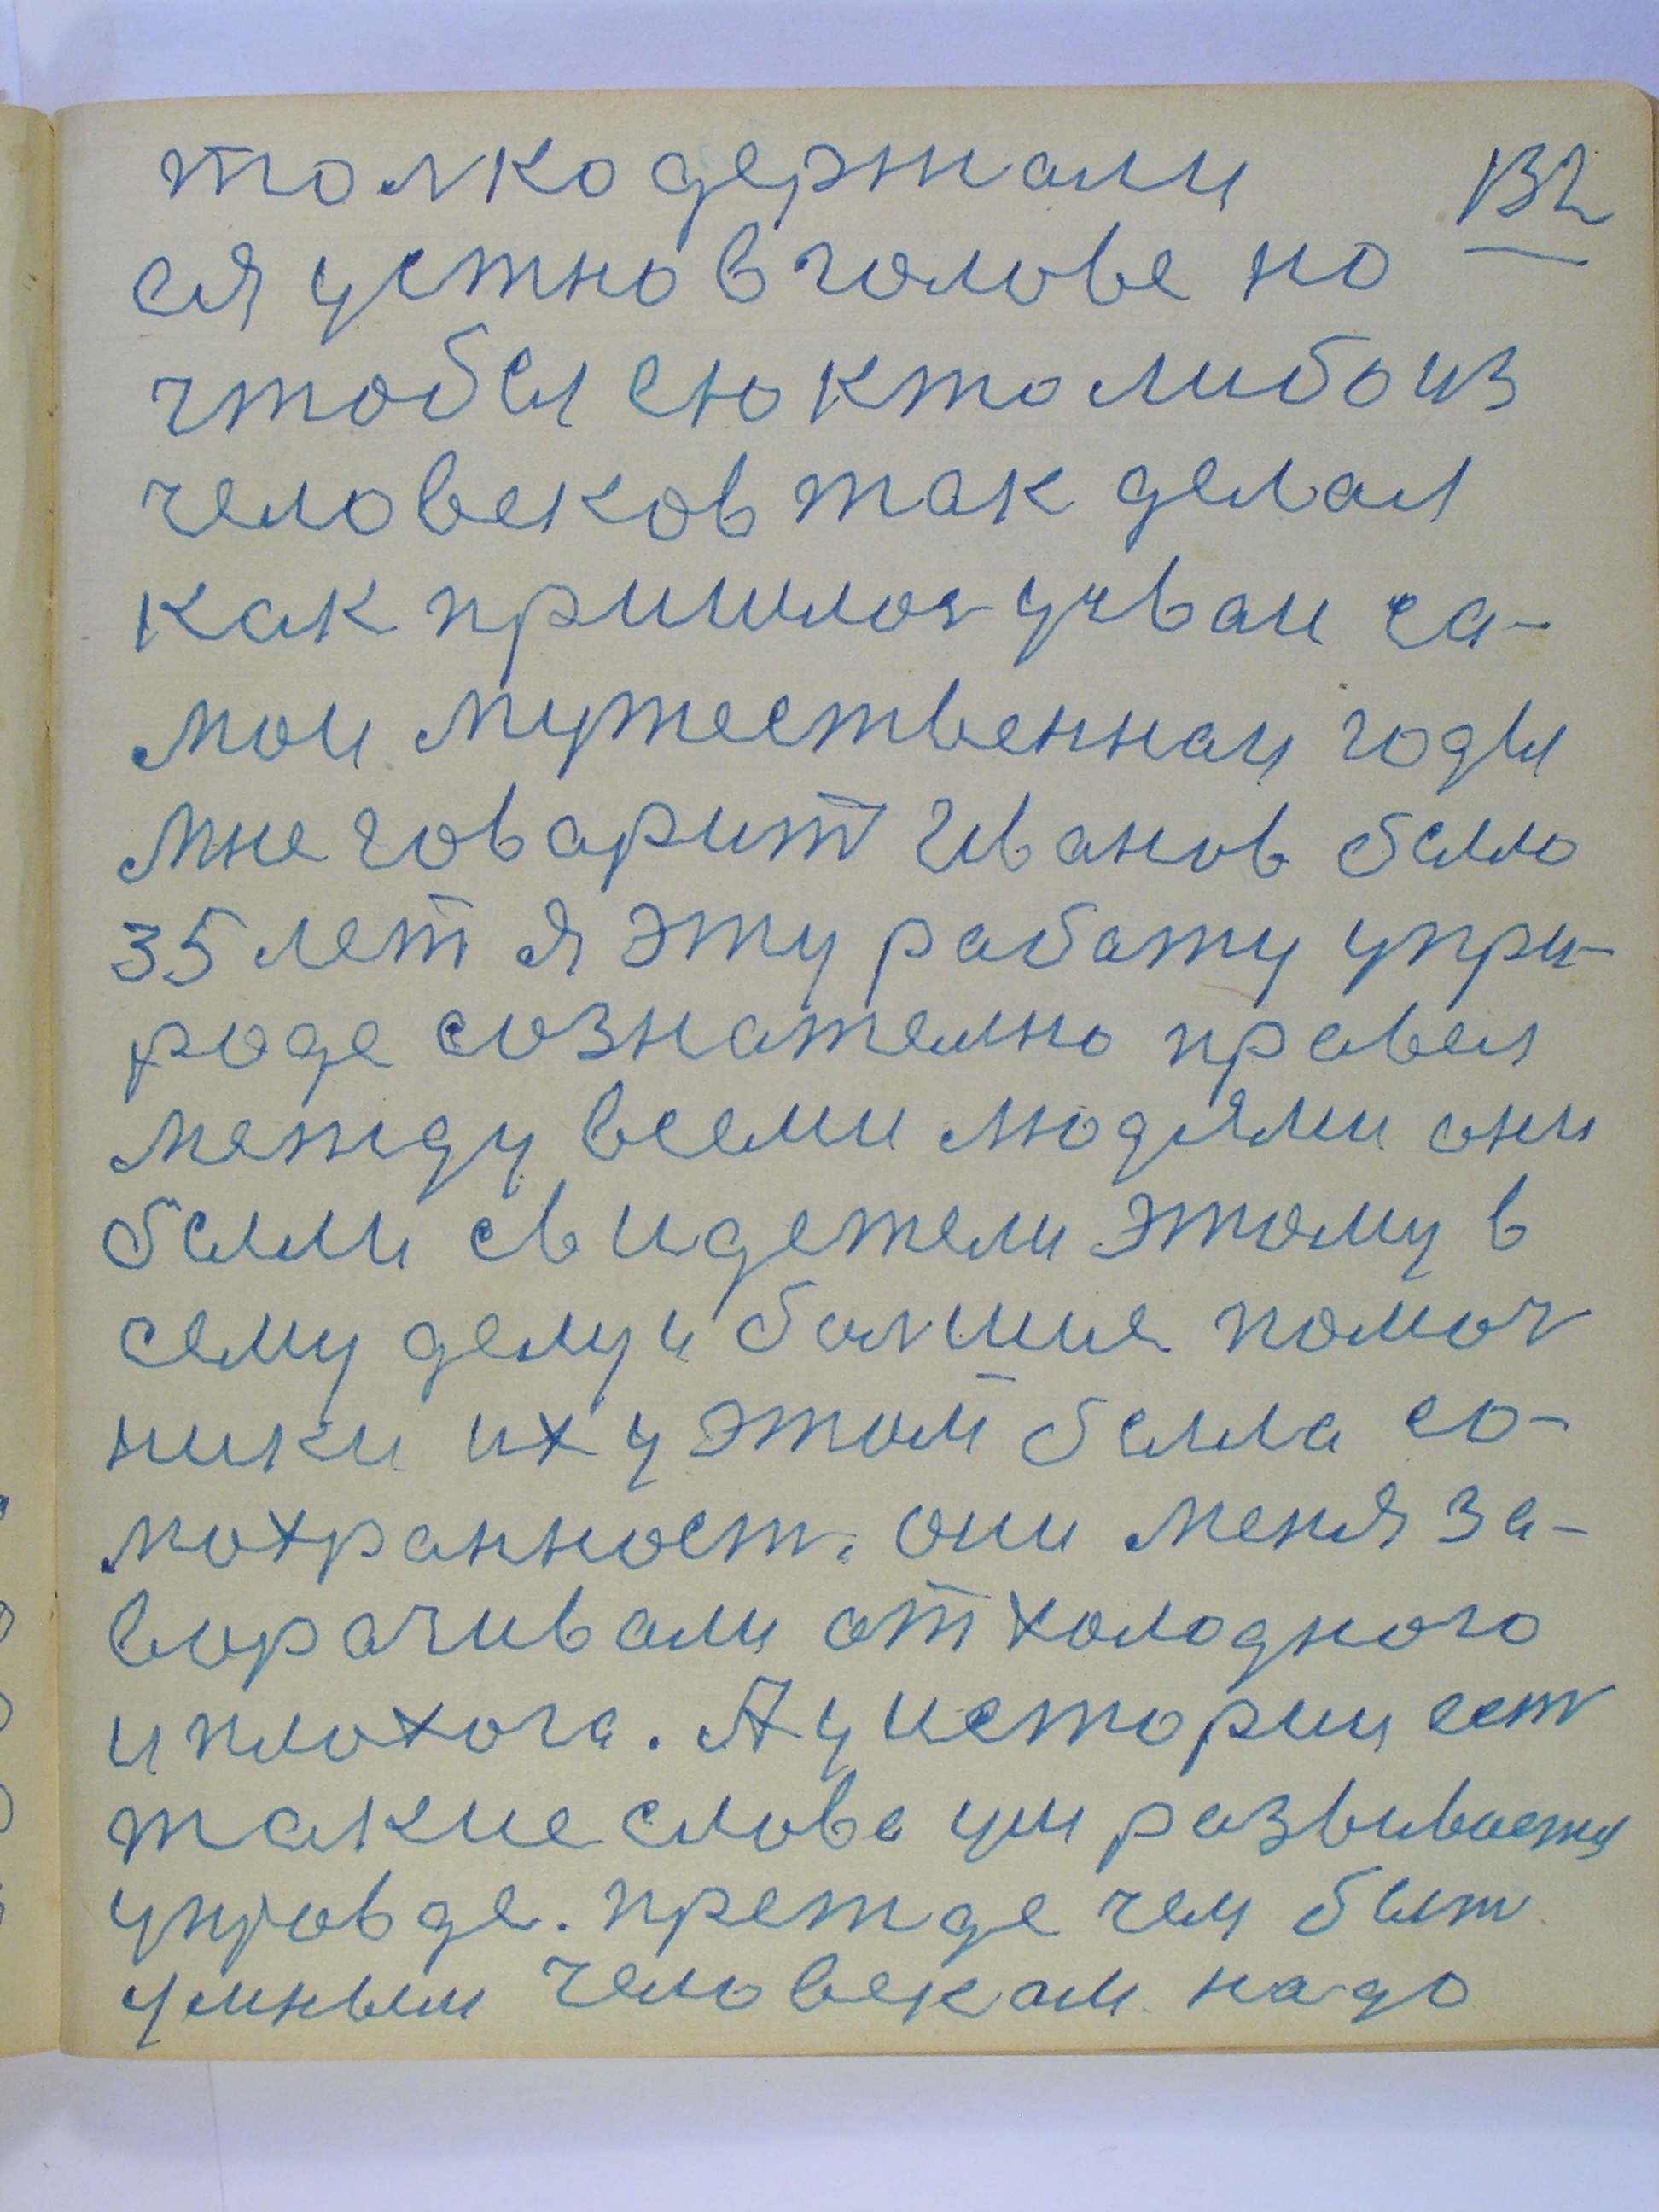 толкодержали 132
ся устно в голове но
чтобы ею кто либо из
человеков так делал
как пришлос учваи са-
мои мужественнаи годы
мне говарит Иванов было
35 лет я эту работу упри-
роде сознателно правел
между всеми людями они
были свидетели этому в
сему делу и болшие помоч
ники их у этом была со-
мохранност. они меня за-
ворачивали от холодного
и плохога. А у истории ест
такие слова ум развивается
управде. прежде чем быт
умным человекам надо